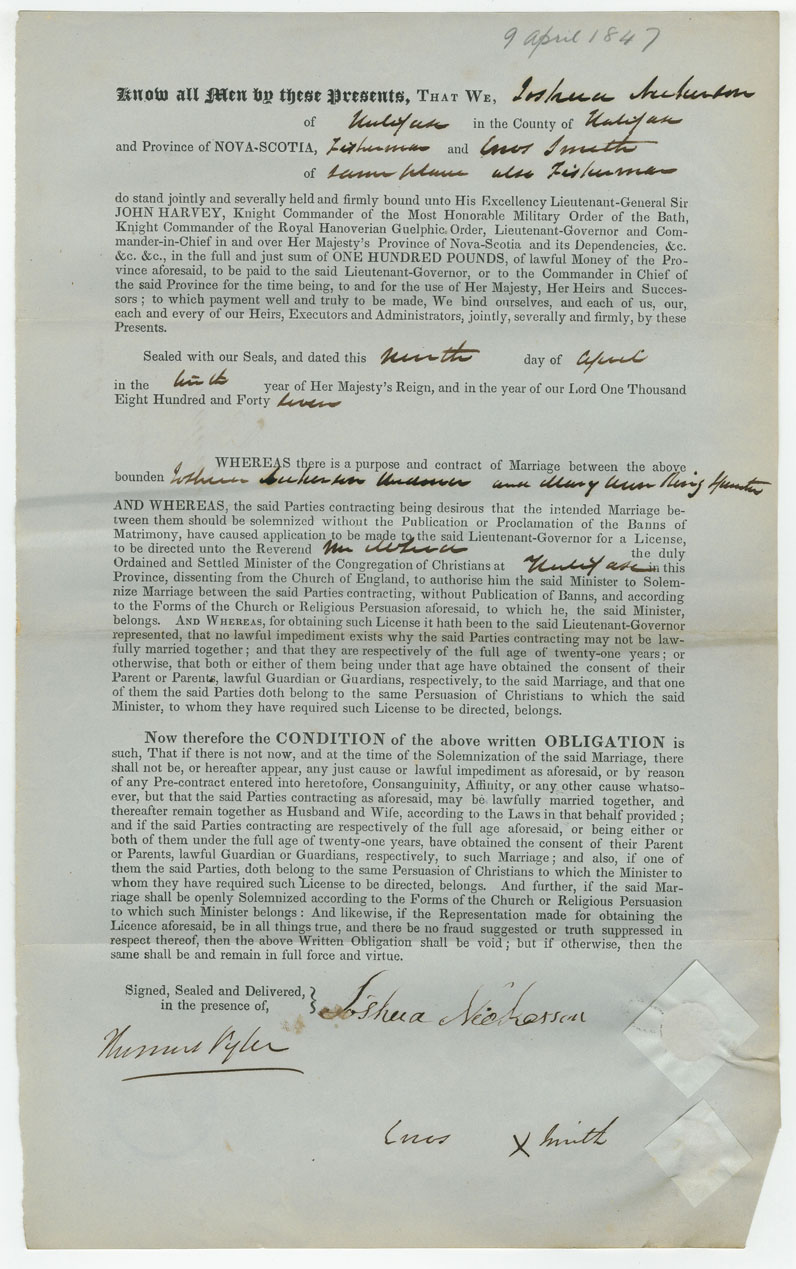 9 April 1847
Know all Men by these Presents, THAT WE, Joshua Nickerson
of Halifax in the County of Halifax
and Province of NOVA-SCOTIA, Fisherman and Enos Smith
of same place also Fisherman
do stand jointly and severally held and firmly bound unto His Excellency Lieutenant-General Sir
JOHN HARVEY, Knight Commander of the Most Honorable Military Order of the Bath,
Knight Commander of the Royal Hanoverian Guelphic Order, Lieutenant-Governor and Com-
mander-in-Chief in and over Her Majesty's Province of Nova-Scotia and its Dependencies, &c.
&c. &c., in the full and just sum of ONE HUNDRED POUNDS, of lawful Money of the Pro-
vince aforesaid, to be paid to the said Lieutenant-Governor, or to the Commander in Chief of
the said Province for the time being, to and for the use of Her Majesty, Her Heirs and Succes-
sors; to which payment well and truly to be made, We bind ourselves, and each of us, our,
each and every of our Heirs, Executors and Administrators, jointly, severally and firmly, by these
Presents.
Sealed with our Seals, and dated this ninth day of April
in the year of Her Majesty's Reign, and in the year of our Lord One Thousand
Eight Hundred and Forty seven
WHEREAS there is a purpose and contract of Marriage between the above
bounden Joshua Nickerson Widower and Mary Ann King Spinster
AND WHEREAS, the said Parties contracting being desirous that the intended Marriage be-
tween them should be solemnized without the Publication or Proclamation of the Banns of
Matrimony, have caused application to be made to the said Lieutenant-Governor for a License,
to be directed unto the Reverend the duly
Ordained and Settled Minister of the Congregation of Christians at Halifax in this
Province, dissenting from the Church of England, to authorise him the said Minister to Solem-
nize Marriage between the said Parties contracting, without Publication of Banns, and according
to the Forms of the Church or Religious Persuasion aforesaid, to which he, the said Minister,
belongs. AND WHEREAS, for obtaining such License it hath been to the said Lieutenant-Governor
represented, that no lawful impediment exists why the said Parties contracting may not be law-
fully married together; and that they are respectively of the full age of twenty-one years; or
otherwise, that both or either of them being under that age have obtained the consent of their
Parent or Parents, lawful Guardian or Guardians, respectively, to the said Marriage, and that one
of them the said Parties doth belong to the same Persuasion of Christians to which the said
Minister, to whom they have required such License to be directed, belongs.
Now therefore the CONDITION of the above written OBLIGATION is
such, That if there is not now, and at the time of the Solemnization of the said Marriage, there
shall not be, or hereafter appear, any just cause or lawful impediment as aforesaid, or by reason
of any Pre-contract entered into heretofore, Consanguinity, Affinity, or any other cause whatso-
ever, but that the said Parties contracting as aforesaid, may be lawfully married together, and
thereafter remain together as Husband and Wife, according to the Laws in that behalf provided;
and if the said Parties contracting are respectively of the full age aforesaid, or being either or
both of them under the full age of twenty-one years, have obtained the consent of their Parent
or Parents, lawful Guardian or Guardians, respectively, to such Marriage; and also, if one of
them the said Parties, doth belong to the same Persuasion of Christians to which the Minister to
whom they have required such License to be directed, belongs. And further, if the said Mar-
riage shall be openly Solemnized according to the Forms of the Church or Religious Persuasion
to which such Minister belongs: And likewise, if the Representation made for obtaining the
Licence aforesaid, be in all things true, and there be no fraud suggested or truth suppressed in
respect thereof, then the above Written Obligation shall be void; but if otherwise, then the
same shall be and remain in full force and virtue.
Signed, Sealed and Delivered,
in the presence of,
Joshua Nickerson
Enos X Smith